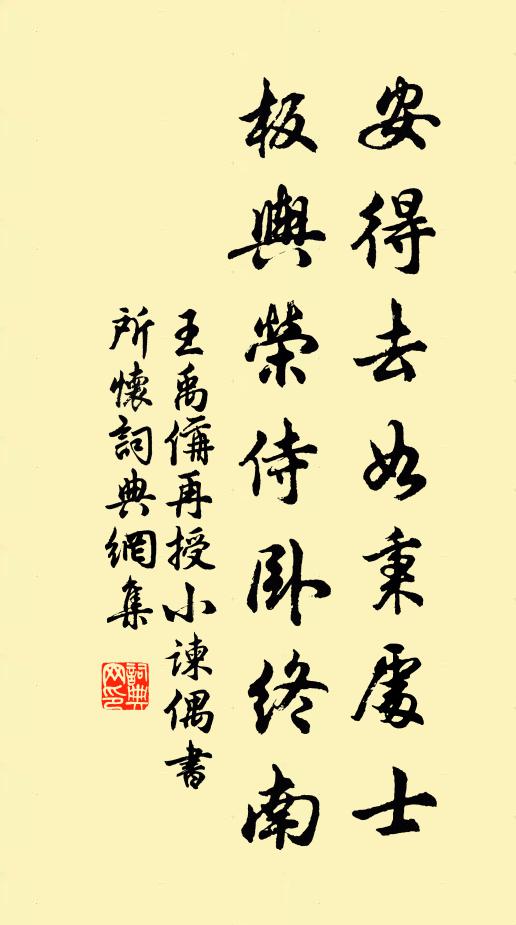 安得去如秉處士
板輿榮侍臥終南
王禹偁再授小諫偶書
所懷詞典網集
詞典網印